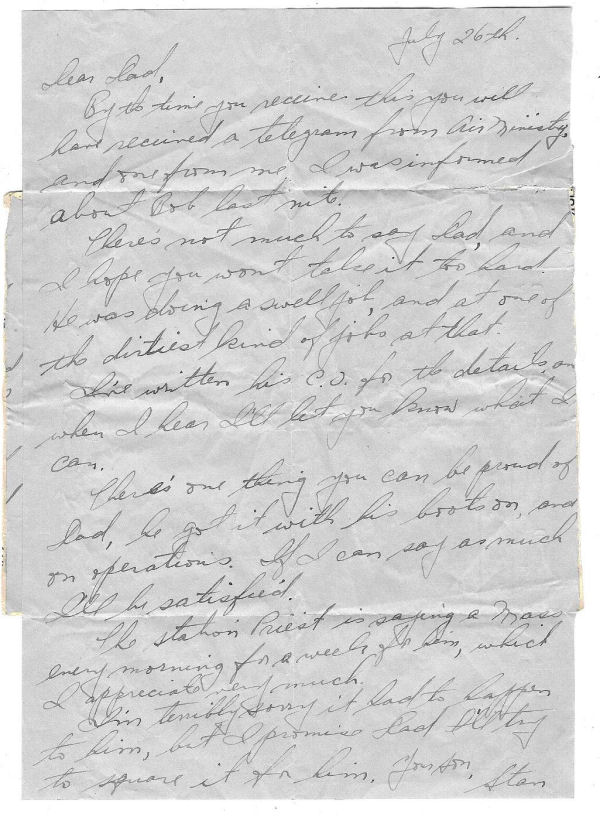 July 26th.
Dear Dad,
By the time you receive this you will
have received a telegram from Air Ministry,
and one from me. I was informed
about Bob last nite.
There's not much to say Dad, and
I hope you won't take it too hard.
He was doing a swell job, and at one of
the dirtiest kind of jobs at that.
I've written his C.O. for the details, an
when I hear I'll let you know what I
can.
There's one thing you can be proud of
Dad, he got it with his boots on, and
on operations. If I can say as much
I'll be satisfied.
The station Priest is saying a Mass
every morning for a week for him, which
I appreciate very much.
I'm terribly sorry it had to happen
to him, but I promise Dad I'll try
to square it for him. Your son,
Stan